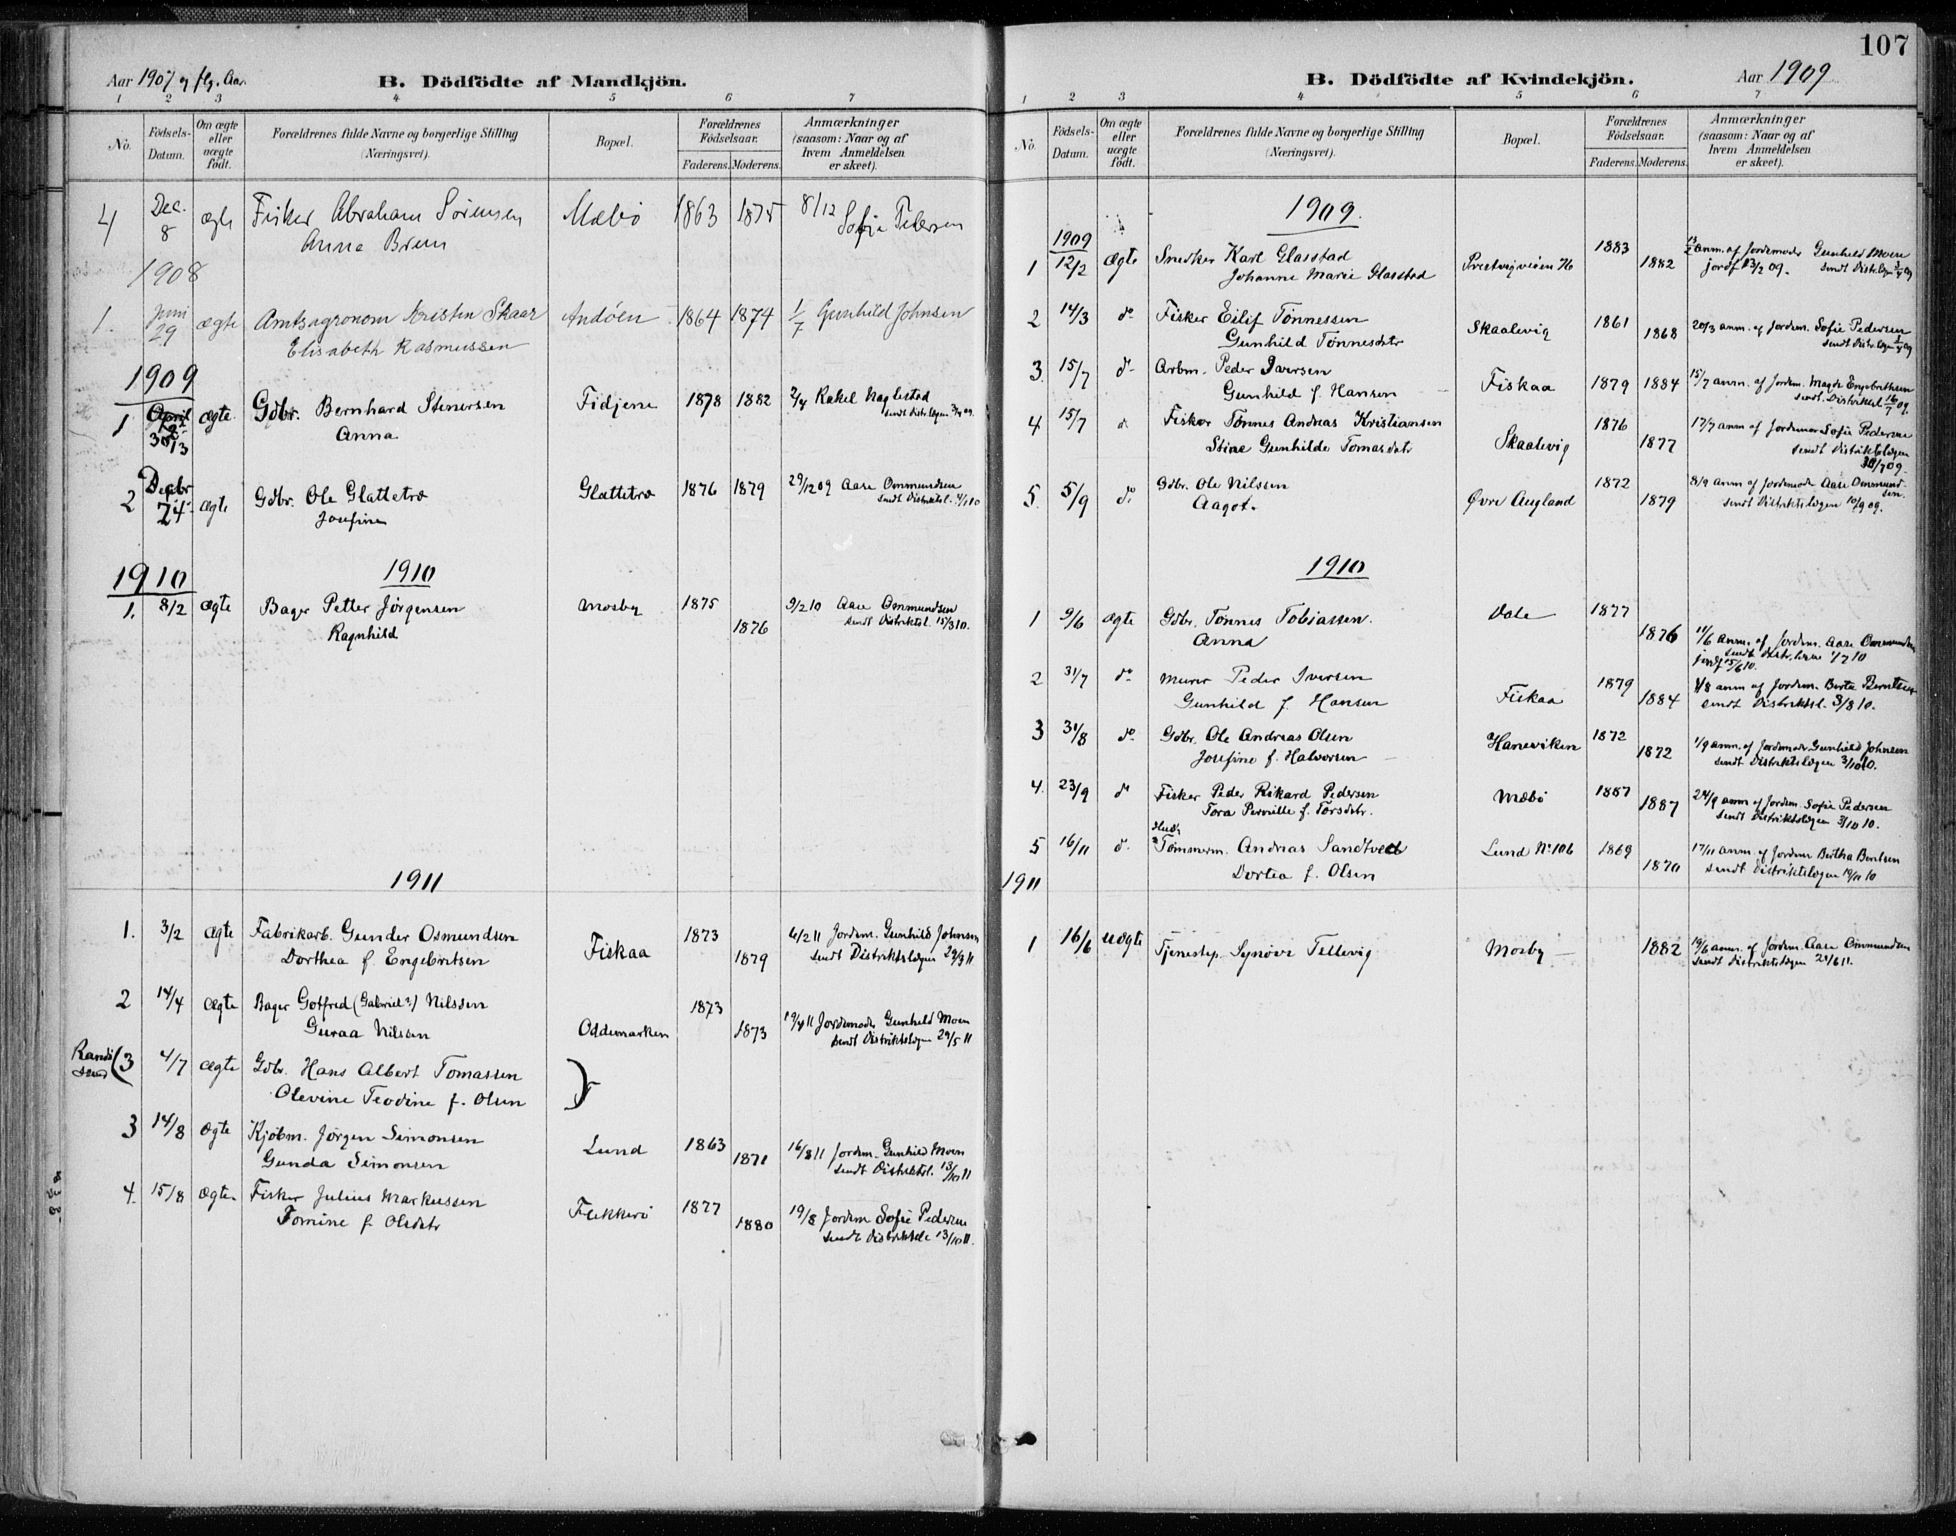 107
Aar 1907 og flg. Aar. B. Dödfödte af Mandkjön.
1 2 3 4 5 6 7
No. Födsels-Datum. Om ægte eller uægte födt. Forældrenes fulde Navne og borgerlige Stilling (Næringsvei). Bopæl. Forældrenes Födselsaar. Faderens. Moderens. Anmærkninger (saasom: Naar og af hvem Anmeldelsen er skeet).
4 Dec. 8 ægte Fisker Abraham Sörensen Mæbö 1863 1875 8/12 Sofie Pedersen
Anna Breen
1908
1. Juni 29 ægte Amtsagronom Kristen Skaar Andöen 1864 1874 1/7 Gunhild Johnsen
Elisabeth Rasmussen
1909
1 30/3 ægte Gdbr. Bernhard Stenersen Fidjene 1878 1882 2/4 Rakel Naglestad
Anna sendt distr.lægen
2 Decbr 24 ægte Gdbr. Ole Glattetre Glattetre 1876 1879 29/12 09 Aase Ommundsen
Josefine sendt Distriktsl.
1910 1910
1. 8/2 ægte Bager Petter Jörgensen Mosby 1875 9/2 10 Aase Ommundsen
Ragnhild 1876 sendt Distriktsl. 15/3 10.
1911
1. 3/2 ægte Fabrikarb. Gunder Osmundsen Fiskaa 1873 4/2 11 Jordm. Gunhild Johnsen
Dorthea f. Engebritsen 1879 sendt Distriktslægen
2 14/4 ægte Bager Gotfred (Gabriel?) Nilssen 1873
Guraa Nilssen Oddemarken 1873 19/4 11 Jordemoder Gunhild Moen
sendt Distriktslægen 29/5 11
Randösund (3 4/7 ægte Gdbr. Hans Albert Tomassen
Olevine Teodine f. Olsen
3 14/8 ægte Kjöbm. Jörgen Simonsen Lund 1863 16/8 11 Jordm. Gunhild Moen
Gunda Simonsen 1871 sendt Distriktsl. 13/10 11
4. 15/8 ægte Fisker Julius Markussen Flekkerö 1877 19/8 Jordem Sofie Pedersen
Tomine f. Olsdtr 1880 sendt Distriktsl. 13/10 11.
B. Dödfödte af Kvindekjön. Aar 1909
1 2 3 4 5 6 7
No. Födsels-Datum. Om ægte eller uægte födt. Forældrenes fulde Navne og borgerlige Stilling (Næringsvei). Bopæl. Forældrenes Födselsaar. Faderens. Moderens. Anmærkninger (saasom: Naar og af hvem Anmeldelsen er skeet).
1909.
1909
1 12/2 ægte Snedker Karl Glasstad 1883 anm. af Jordemoder Gunhild Moen
Johanne Marie Glasstad 1882 sendt Distr.lægen
2 14/3 do Fisker Eilif Tönnessen Skaalevig 1861 20/3 anm. af Jordem. Sofie Pedersen
Gunhild Tönnesdtr 1868 sendt Distr.lægen
3. 15/7 do Arbm. Peder Iversen Fiskaa 1879 1884 15/7 anm. af Jordem. Magda Engebrethsen
Gunhild f. Hansen sendt. Distriktsl. 16/7 09.
4 15/7 do Fisker Tönnes Andreas Kristiansen 1876 17/7 anm af Jordemor Sofie Pedersen
Stine Gunhilde Tomasdtr Skaalevig 1877 sendt Distriktslægen
5. 5/9 do Gdbr. Ole Nilssen Övre Augland 1872 8/9 anm af Jordemoder Aase Ommundsen.
Aagot. 1879 sendt Distriktslægen 10/9 09.
1910
1 9/6 ægte Gdbr. Tönnes Tobiassen. Vale 1877
Anna 1876 11/6 anm. af Jordem. Aase Ommundsen
2 31/7 do Murer Peder Iversen Fiskaa 1879 anm af Jordem. Berta Berntsen
Gunhild f. Hansen 1884 sendt Distriktsl. 3/8 10.
3 31/8 do Gdbr. Ole Andreas Olsen Haneviken 1872
Josefine f. Halvorsen 1872 1/9 anm. af Jordemoder Gunhild Johnsen
sendt Distriktslægen 3/10 10.
4. 23/9 do Fisker Peder Rikard Pedersen Mæbö 1887
Tora Pernille f. Torsdtr. 1887 24/9 anm af Jordem. Sofie Pedersen
sendt Distriktslægen 3/10 10.
5 16/11 do Tömmerm. Andreas Sandtveit Lund No 106 1869 17/11 anm. af Jordem Bertha Berntsen
Dortea f. Olsen 1870 sendt Distriktslægen 19/11 10
1911
1 16/6 uægte Tjenestep. Synöve Tellevig Mosby 1882 19/6 anm. af Jordem. Aase Ommundsen
sendt Distriktslægen